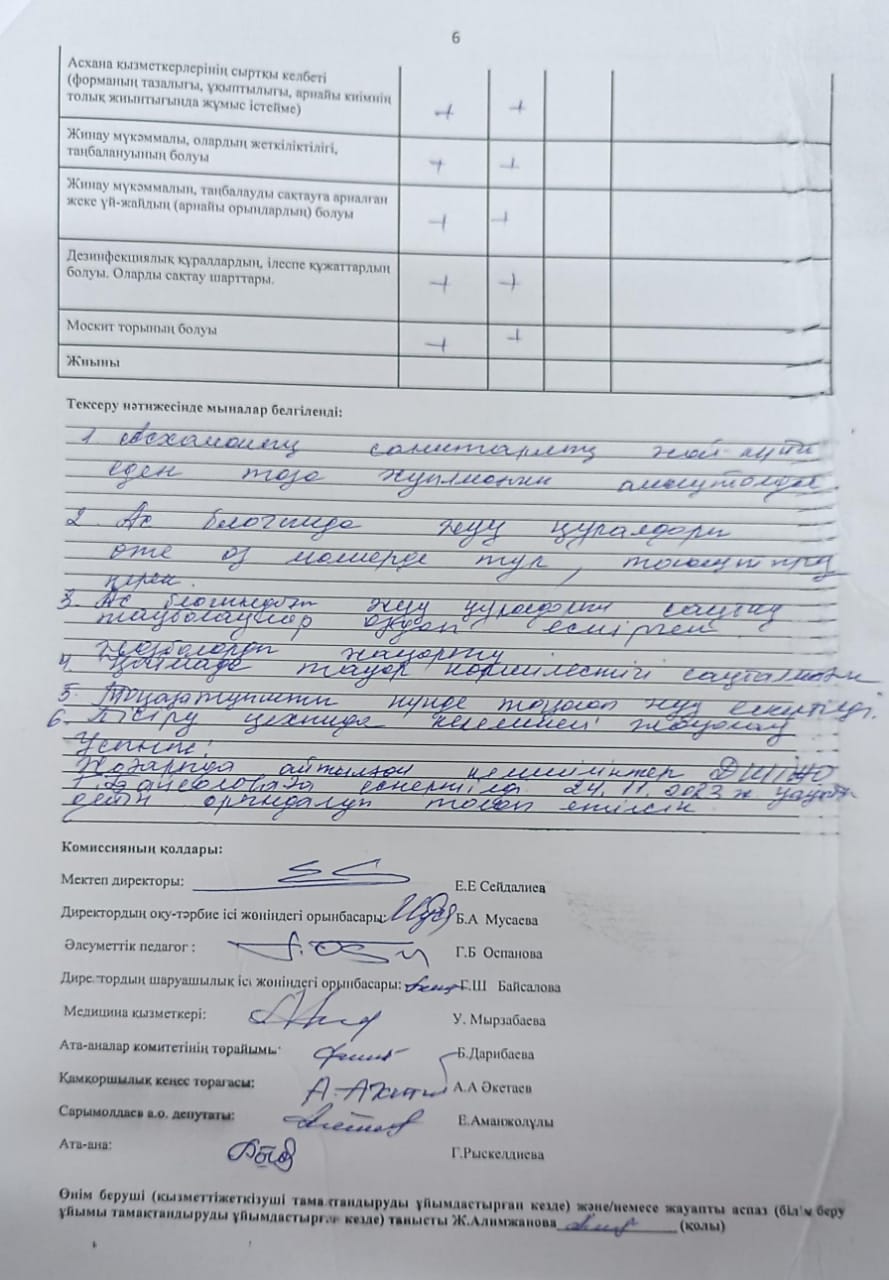 6
Асхана қызметкерлерінің сыртқы келбеті
(форманың тазалығы, ұқыптылығы, арнайы киімнің
толық жиынтығында жұмыс істейме) + +
Жинау мүкәммалы, олардың жеткіліктілігі,
таңбалануының болуы + +
Жинау мүкәммалын, таңбалауды сақтауға арналған
жеке үй-жайдың (арнайы орындардың) болуы + +
Дезинфекциялық құралдардың, ілеспе құжаттардың
болуы. Оларды сақтау шарттары. + +
Москит торының болуы + +
Жиыны
Тексеру нәтижесінде мыналар белгіленді:
1. Асхананың санитарлық жай-күйі
еден таза жуылмаған анықталды.
2. Ас блогында жуу құралдары
өте аз мөлшерде тұр, толықтыру
керек.
3. Ас блогындағы жуу құралдарын сақтау
таңбалаулар әбден ескірген
жазбаларды жаңарту
4. Қоймада тауар көршілестігі сақталмаған
5. Тоңазытқышты күнде тазалап жуу ескертілді.
6. Пісіру цехында
Ұсыныс:
Жоғарыда айтылған кемшіліктер ДШІЖО
Г. Байсаловаға ескертілді 24.11.2023 ж
дейін орындалуы талап етілсін
Комиссияның қолдары:
Мектеп директоры: Е.Е Сейдалиев
Директордың оқу-тәрбие ісі жөніндегі орынбасары: Б.А Мусаева
Әлеуметтік педагог : Г.Б Оспанова
Директордың шаруашылық ісі жөніндегі орынбасары: Г.Ш Байсалова
Медицина қызметкері: У. Мырзабаева
Ата-аналар комитетінің төрайымы: Б.Дарибаева
Қамқоршылық кеңес төрағасы: А.А Әкетаев
Сарымолдаев а.о. депутаты: Е.Аманжолұлы
Ата-ана: Г.Рыскелдиева
Өнім беруші (қызметтіжеткізуші тамақтандыруды ұйымдастырған кезде) және/немесе жауапты аспаз (білім беру
ұйымы тамақтандыруды ұйымдастырған кезде) танысты Ж.Алимжанова (қолы)